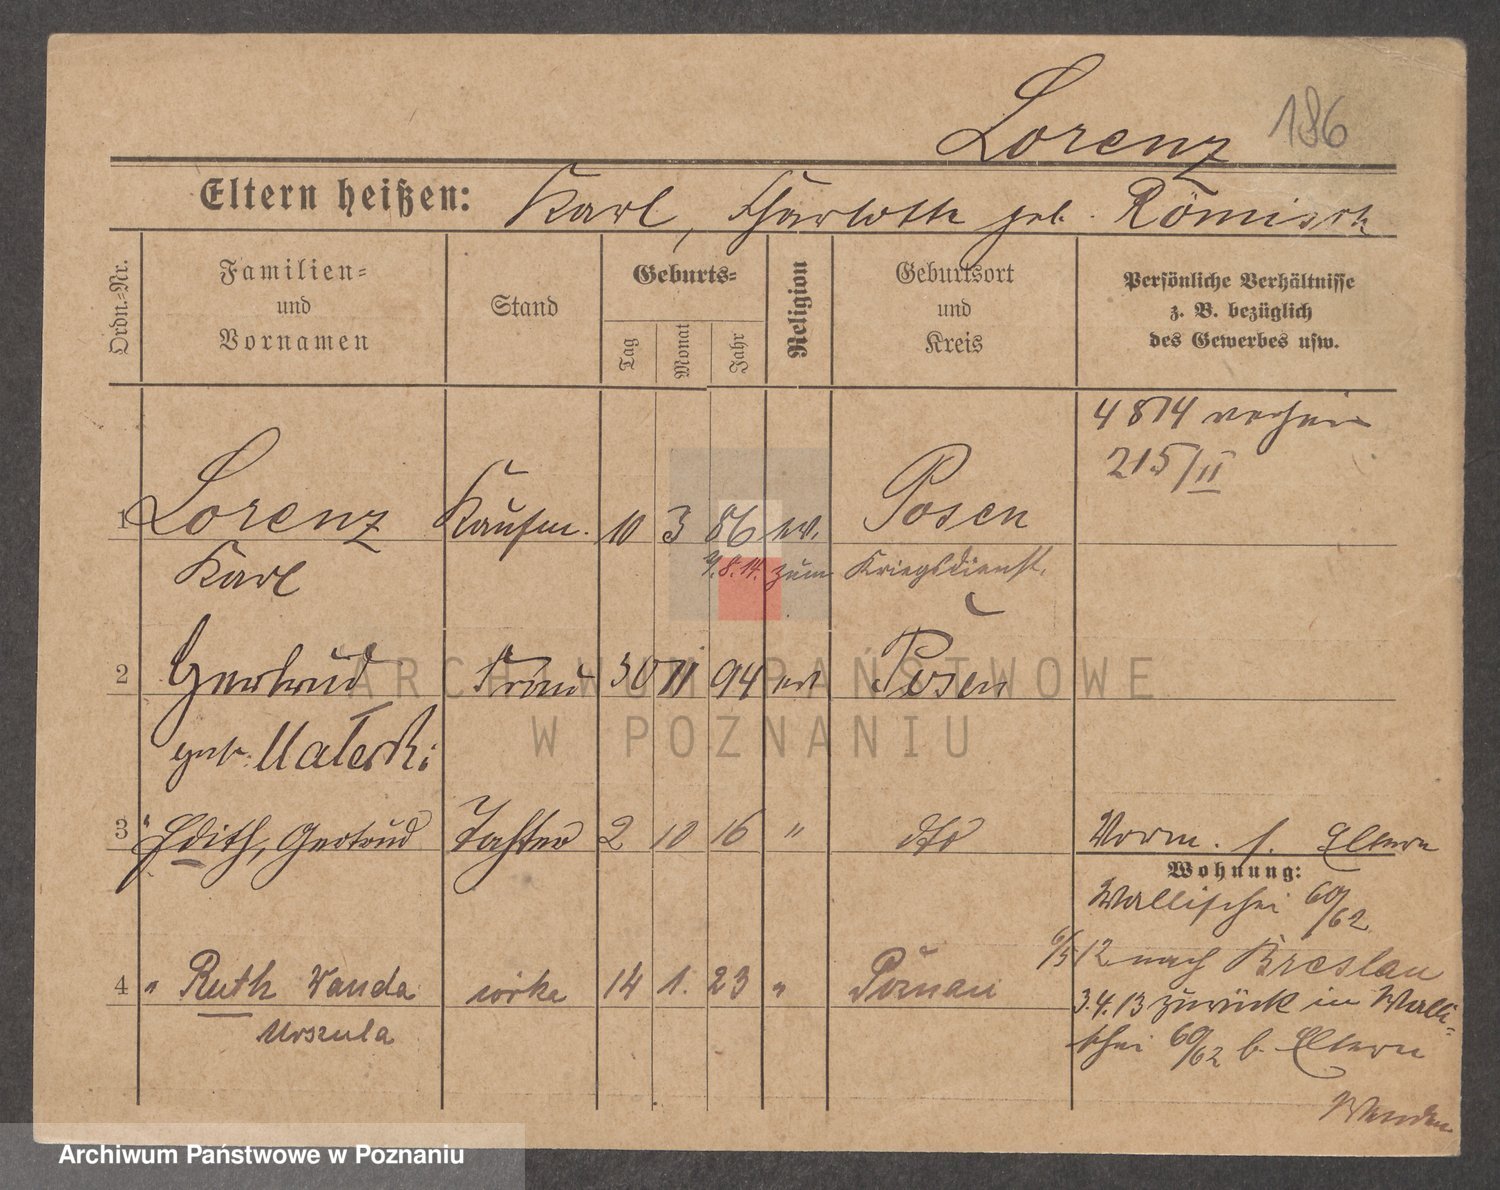 Lorenz 186
Eltern heißen: Karl, Charlotte geb. Römisch
Ordn.-Nr.
Familien-
und
Vornamen
Stand
Geburts-
Tag
Monat
Jahr
Religion
Geburtsort
und
Kreis
Persönliche Verhältnisse
z. B. bezüglich
des Gewerbes usw.
4814
215/II
1 Lorenz Kaufm. 10 3 86 ev. Posen
Karl 9.8.14. zum Kriegsdienst.
2 Gertrud Frau 30 11 94 ev Posen
geb. Materski
3 " Edith, Gertrud Tochter 2 10 16 " dto Vorm. s. Eltern
Wohnung:
Wallischei 60/62
4 " Ruth Wanda córka 14 1. 23 " Poznań 6/5 12 nach Breslau
Urszula
3.4.13 zurück in Walli-
schei 60/62 b. Eltern
Wenden
ARCHIWUM PAŃSTWOWE
W POZNANIU
Archiwum Państwowe w Poznaniu